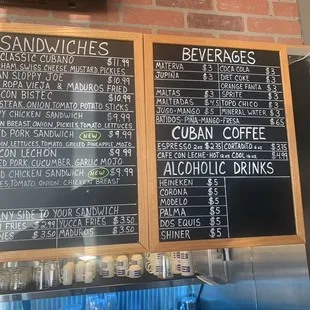 SANDWICHES
CLASSIC CUBANO $11.99
HAM, SWISS CHEESE, MUSTARD PICKLES
SLOPPY JOE $10.99
ROPA VIEJA & MADUROS FRIED
CON BISTEC $10.99
STEAK, ONION, TOMATO POTATO STICKS
CHICKEN SANDWICH $9.99
BREAST ONION, PICKLES, TOMATO, LETTUCES
PORK SANDWICH NEW $9.99
LETTUCES, TOMATO, GRILLED PINEAPPLE, MOJO
CON LECHON $9.99
PORK, CUCUMBER, GARLIC MOJO
CHICKEN SANDWICH NEW $9.99
TOMATO, ONION, CHICKEN BREAST
ANY SIDE TO YOUR SANDWICH
FRIES $2.99 YUCCA FRIES $3.50
$3.50 MADUROS $3.50
BEVERAGES
MATERVA $3
JUPIÑA $3
MALTAS $3
MALTEADAS $4.5
JUGOS $5
COCA COLA $3
DIET COKE $3
ORANGE FANTA $3
SPRITE $3
TOPO CHICO $3
MINERAL WATER $3
BATIDOS-PIÑA-MANGO-FRESA $6.65
CUBAN COFFEE
ESPRESSO $2.35 CORTADITO $
CAFE CON LECHE-HOT OR COOL $4.35
ALCOHOLIC DRINKS
HEINEKEN $5
CORONA $5
MODELO $5
PALMA $5
DOS EQUIS $5
SHINER $5